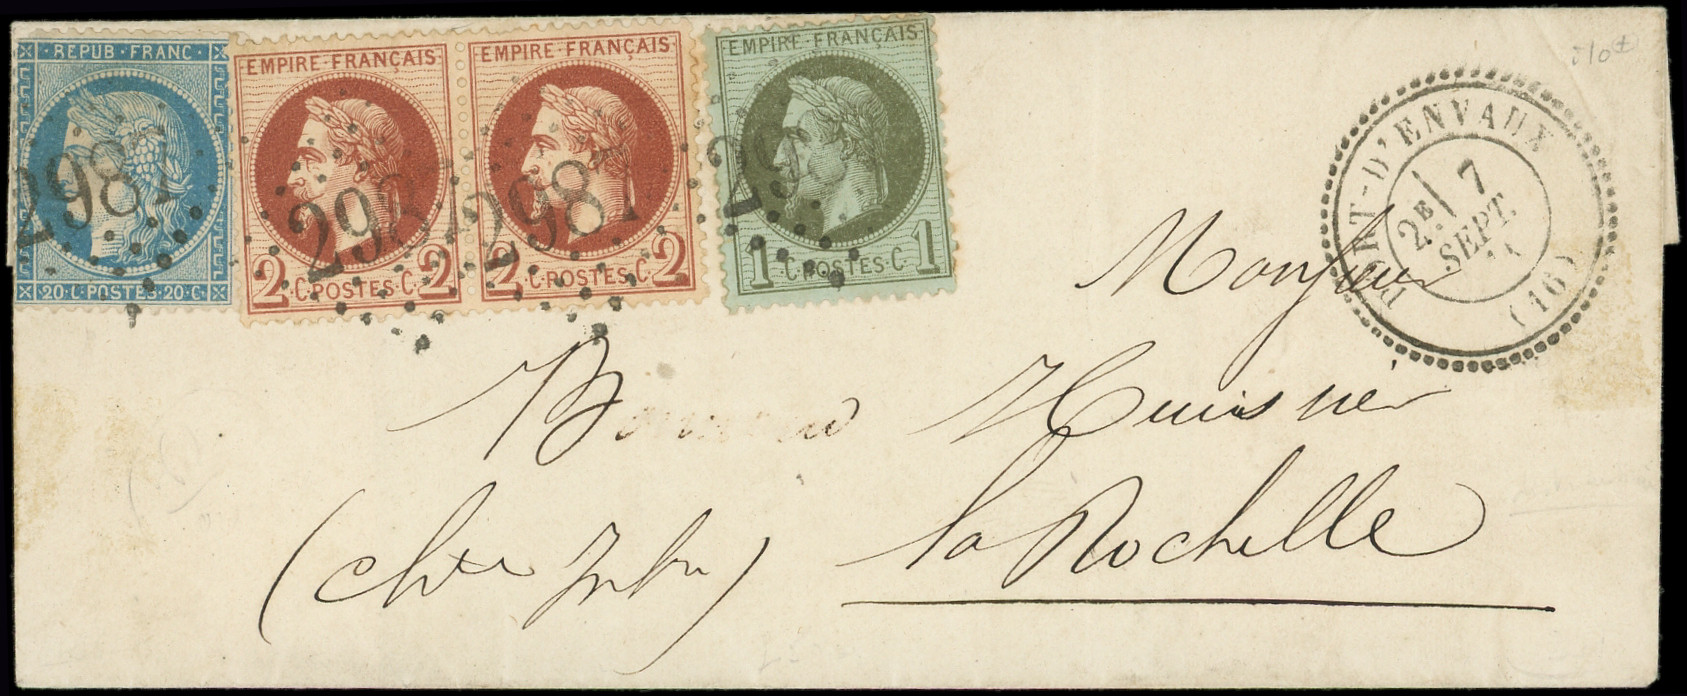 REPUB·FRANC·
20·C·POSTES·20·C·
2987
EMPIRE·FRANÇAIS
2·C·POSTES·C·2
2987
EMPIRE·FRANÇAIS
2·C·POSTES·C·2
2987
EMPIRE·FRANÇAIS
1·C·POSTES·C·1
298
PORT-D'ENVAUX
2E
7
SEPT.
(16)
Monsieur
Huissier
la Rochelle
(chte Infre)